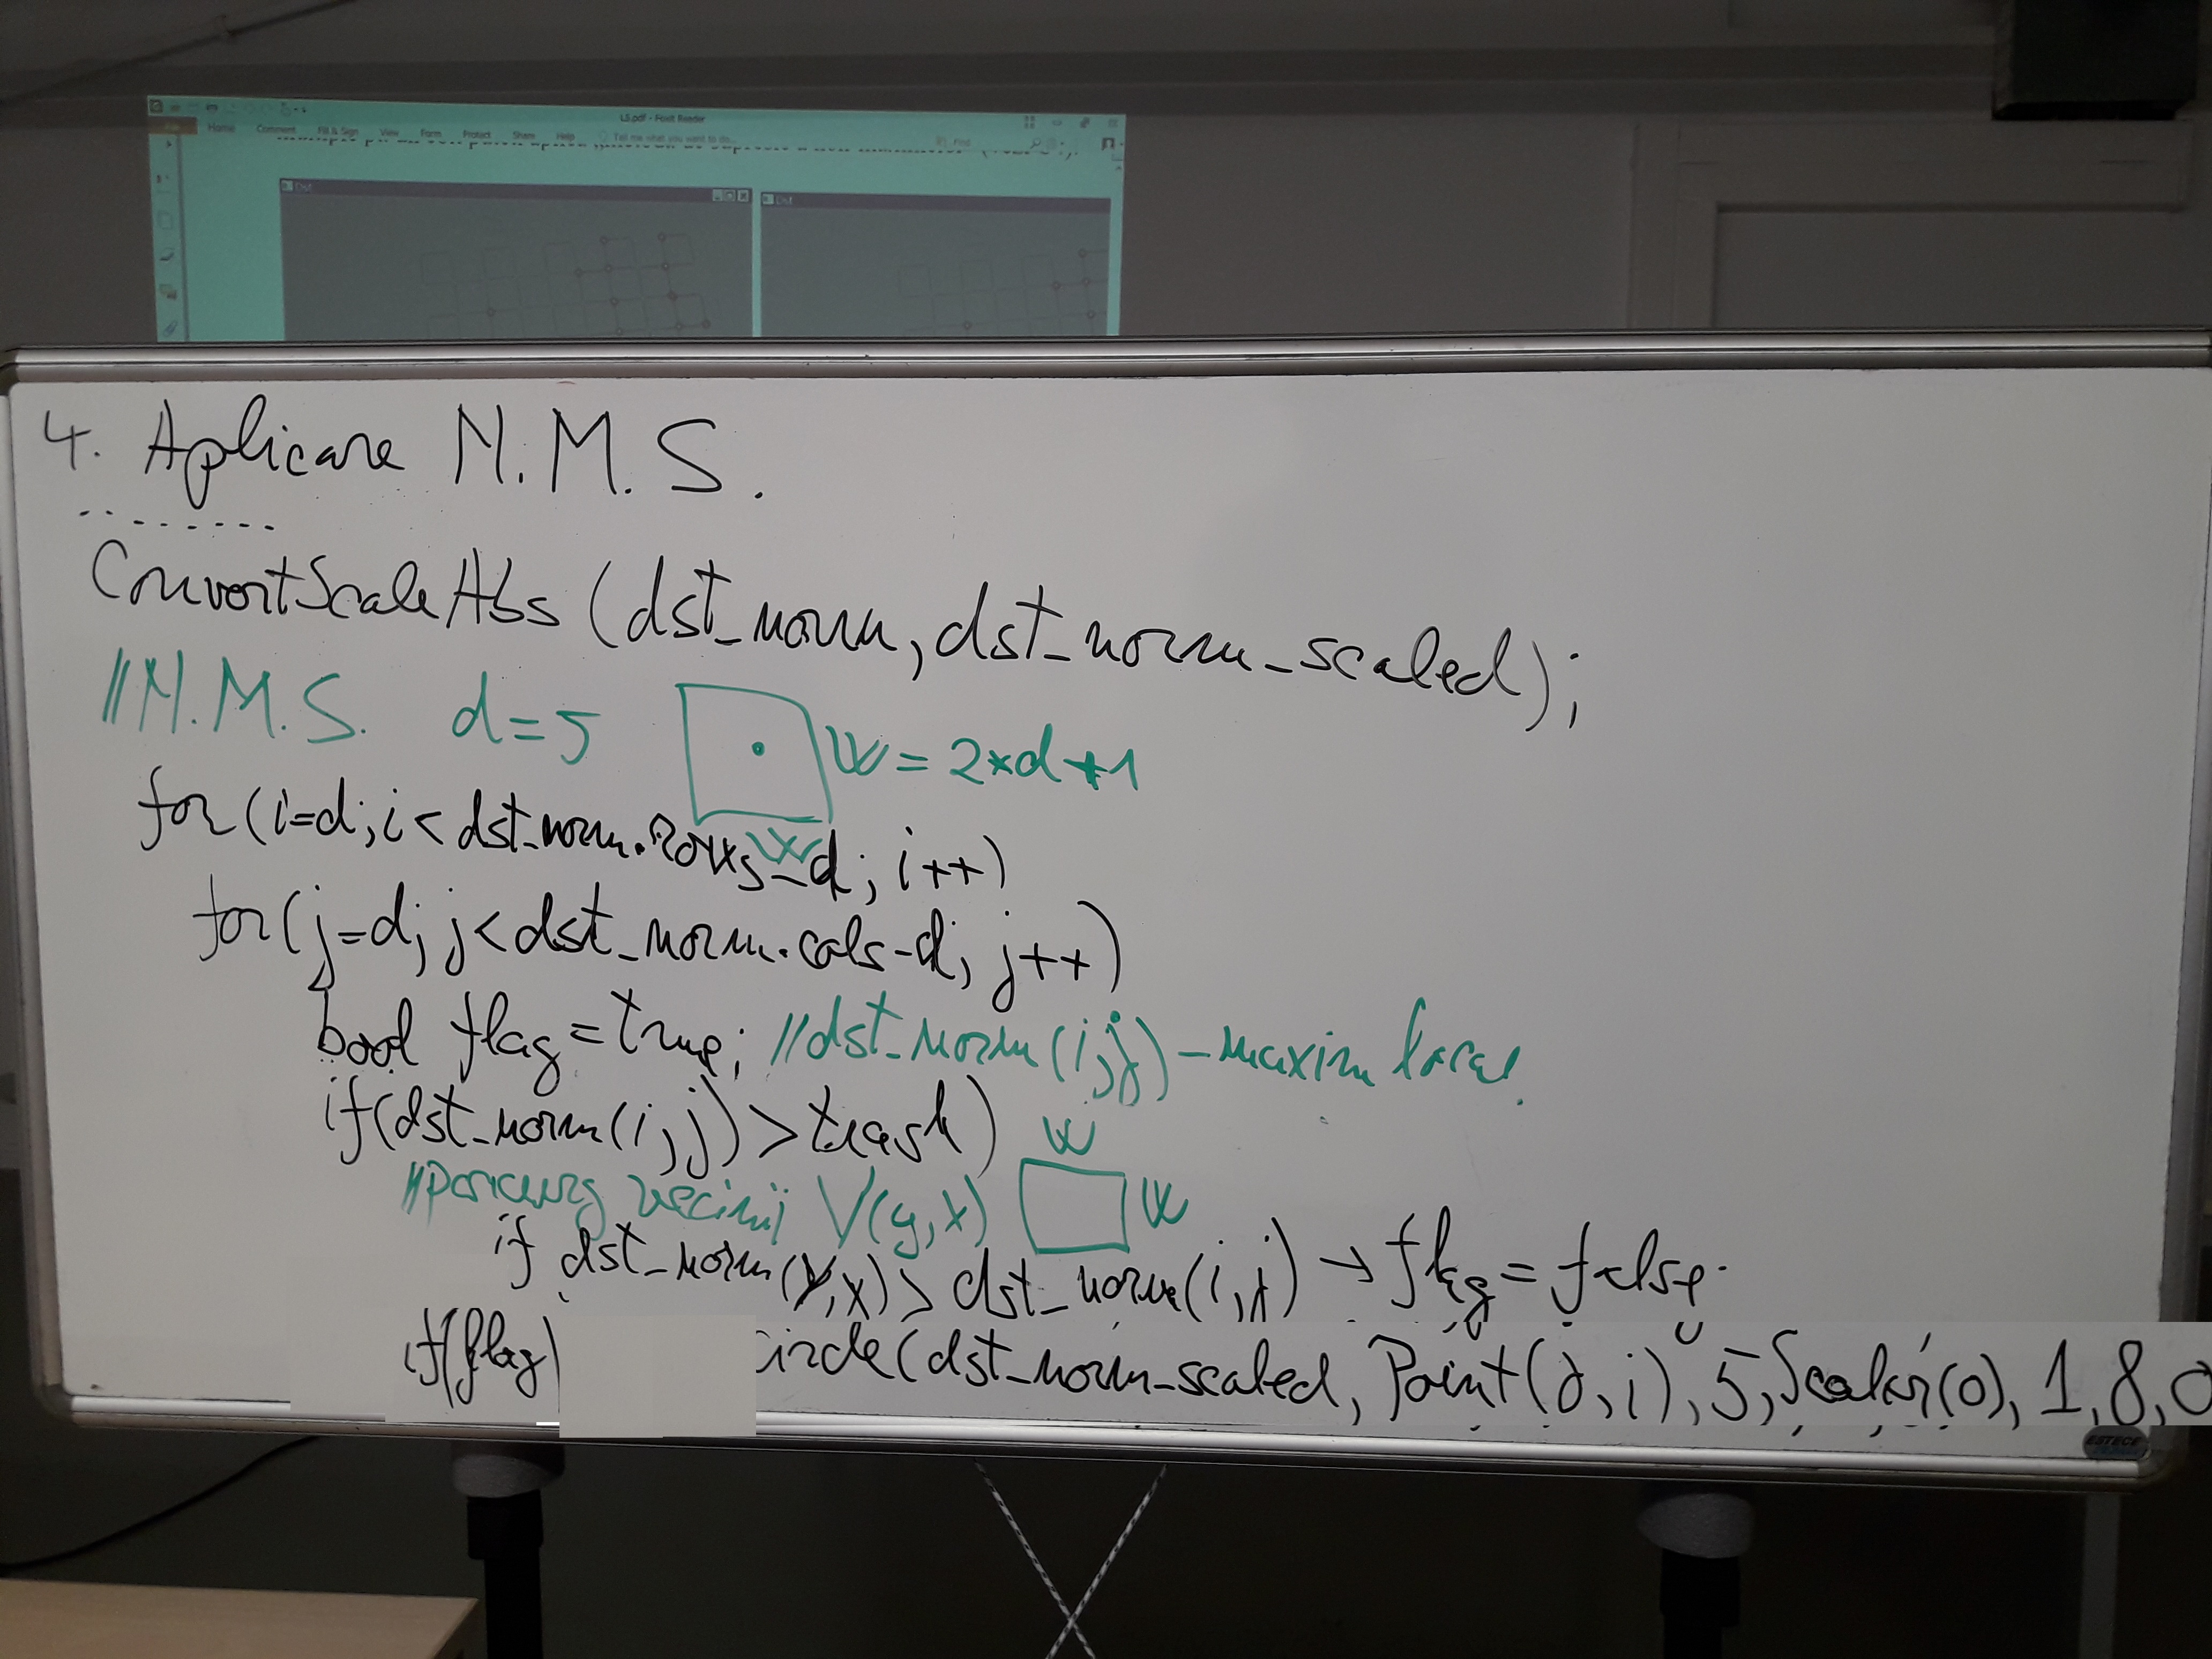 L5.pdf - Foxit Reader
Home Comment Fill & Sign View Form Protect Share Help Tell me what you want to do... Find
Dst
Dst
4. Aplicare N.M.S.
ConvertScaleAbs (dst_norm, dst_norm_scaled);
//N.M.S. d=5 W = 2*d+1
W
for (i=d; i< dst_norm.rows-d; i++)
for(j=d; j<dst_norm.cols-d; j++)
bool flag = true; //dst_norm(i,j) - maxim local
if(dst_norm(i,j) > trash)
W
//Parcurg vecinii V(y,x) W
if dst_norm(y,x) > dst_norm(i,j) → flag = false.
if(flag) circle(dst_norm_scaled, Point(j,i), 5, Scalar(0), 1, 8, 0
ESTECE